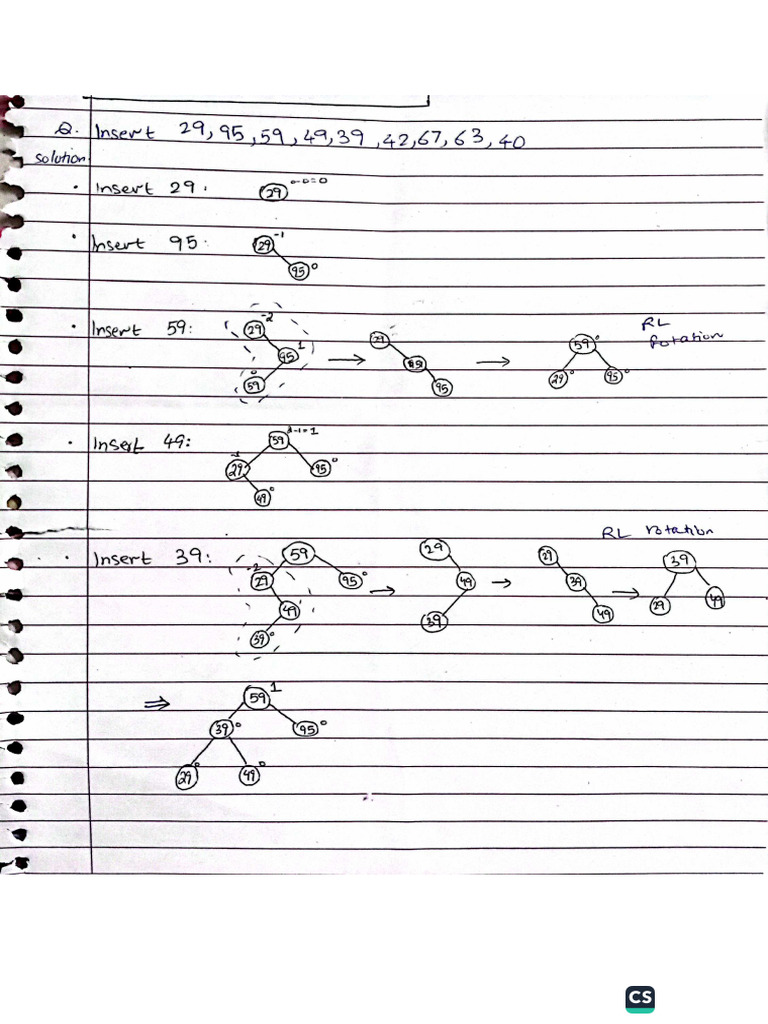 Q. Insert 29, 95, 59, 49, 39, 42, 67, 63, 40
solution
• Insert 29: 29 0-0=0
• Insert 95: 29 -1
95 0
• Insert 59: 29 -2 29 59 0 RL Rotation
95 1 59 29 0 95 0
59 0 95
• Insert 49: 59 2-1=1
29 -1 95 0
49 0
• Insert 39: 59 29 29 39 RL rotation
29 -2 95 0 49 39 29 49
49 39 49
39 0
⇒ 59 1
39 0 95 0
29 0 49 0
CS